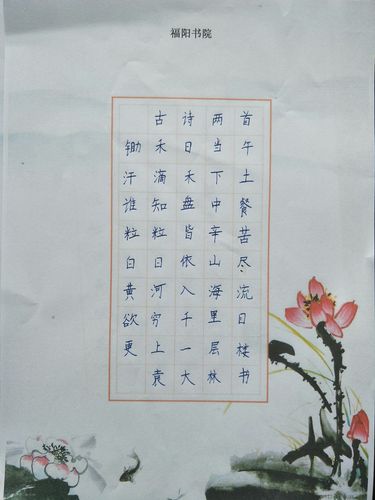 福阳书院
古诗两首
锄禾日当午
汗滴禾下土
谁知盘中餐
粒粒皆辛苦
白日依山尽
黄河入海流
欲穷千里日
更上一层楼
袁大林书